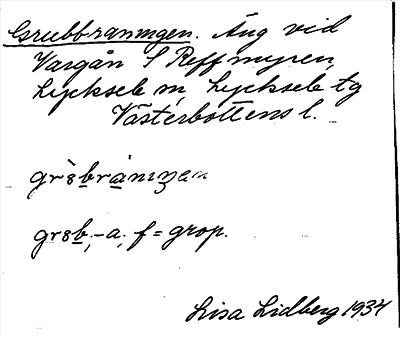 Grubbraningen. Äng vid
Vargån S Reffmyren,
Lycksele sn, Lycksele tg
Västerbottens l.
grub, -a, f = grop.
Lisa Lidberg 1934